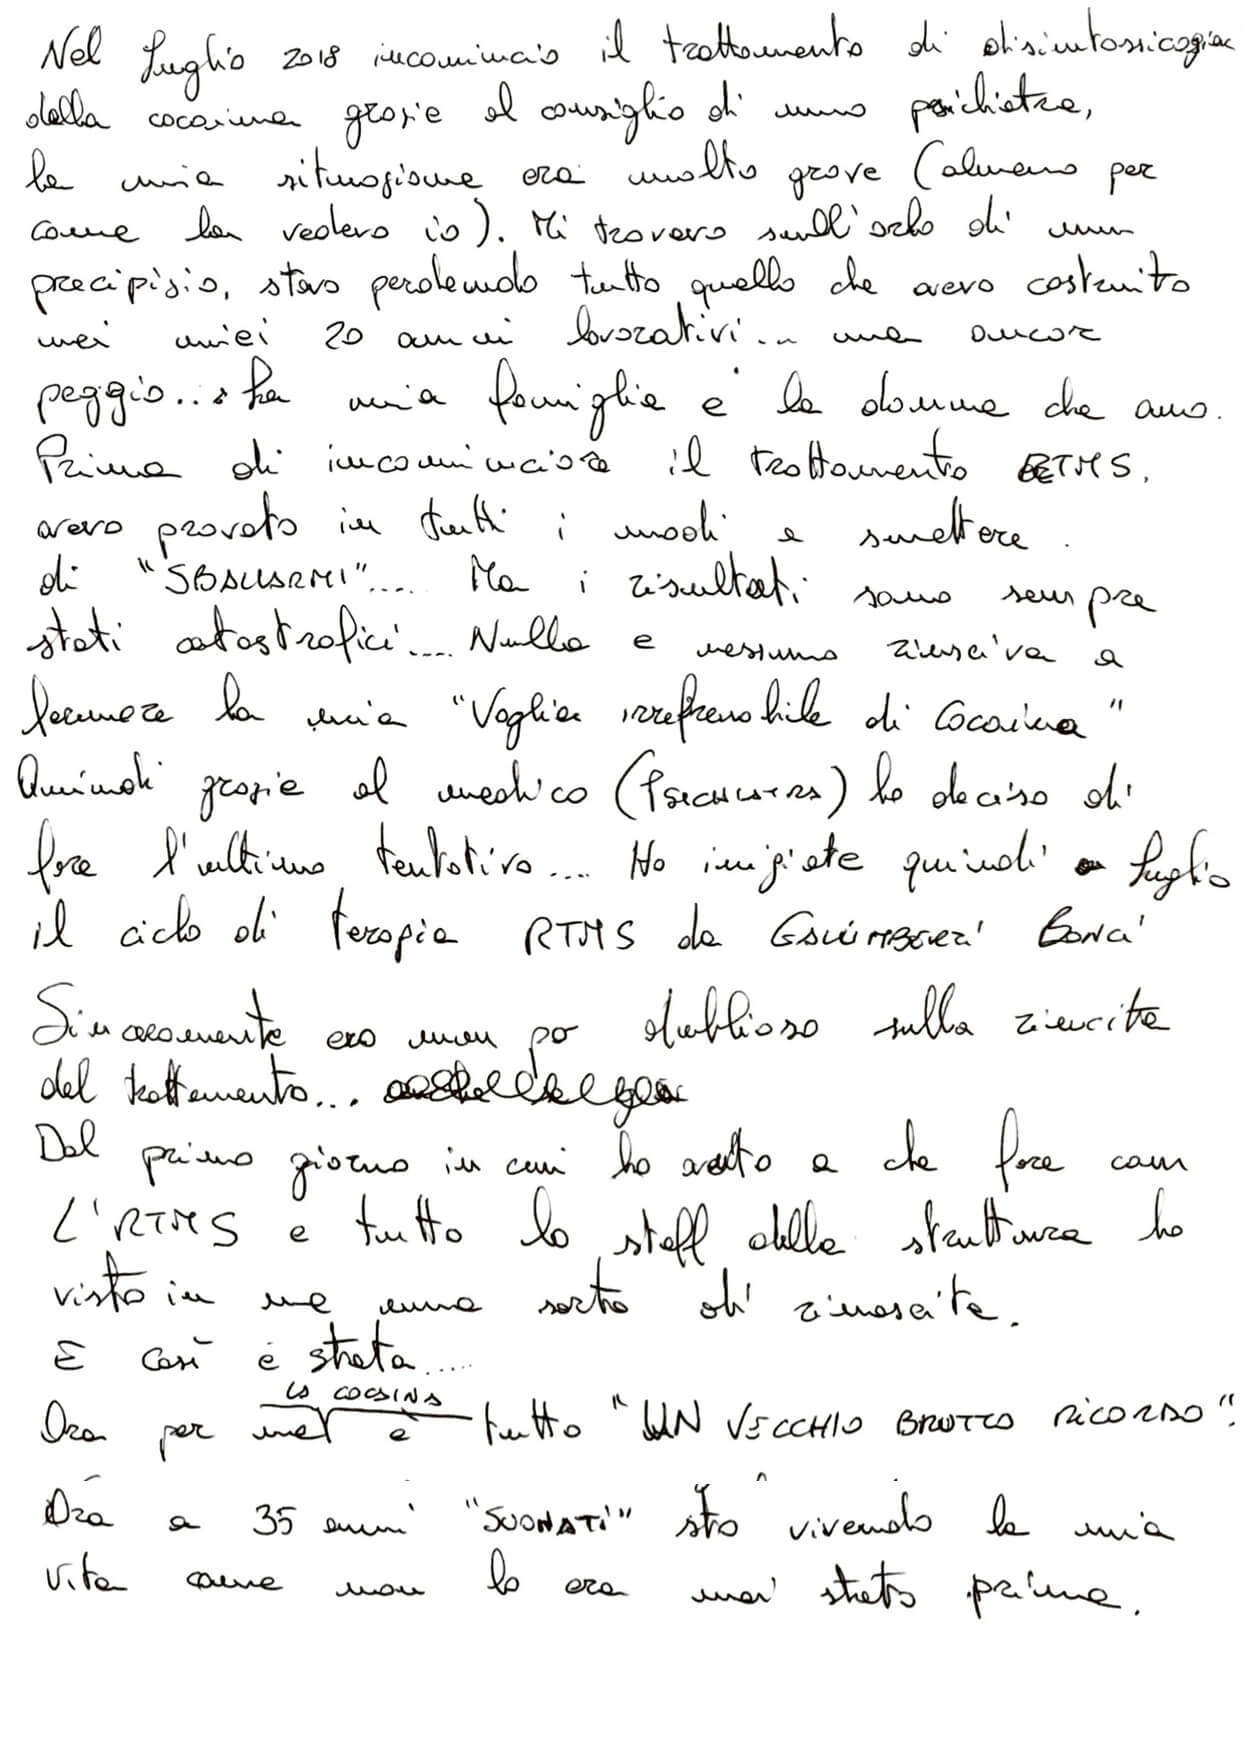 Nel Luglio 2018 incomincio il trattamento di disintossicazion
della cocaina grazie al consiglio di uno psichiatra,
la mia situazione era molto grave (almeno per
come la vedevo io). Mi trovavo sull'orlo di un
precipizio, stavo perdendo tutto quello che avevo costruito
nei miei 20 anni lavorativi... ma ancor
peggio... la mia famiglia e la donna che amo.
Prima di incominciare il trattamento RTMS,
avevo provato in tutti i modi a smettere
di "SBALLARMI".... Ma i risultati sono sempre
stati catastrofici.... Nulla e nessuno riusciva a
fermare la mia "Voglia irrefrenabile di Cocaina"
Quindi grazie al medico (PSICHIATRA) ho deciso di
fare l'ultimo tentativo.... Ho iniziato quindi a Luglio
il ciclo di terapia RTMS da GALLIMBERTI BONCI
Sinceramente ero un po dubbioso sulla riuscita
del trattamento...
Dal primo giorno in cui ho avuto a che fare con
L'RTMS e tutto lo staff della struttura ho
visto in me una sorta di rinascita.
E così è stata.....
la COCAINA
Ora per me è tutto "UN VECCHIO BRUTTO RICORDO".
Ora a 35 anni "SUONATI" sto vivendo la mia
vita come non lo era mai stata prima.